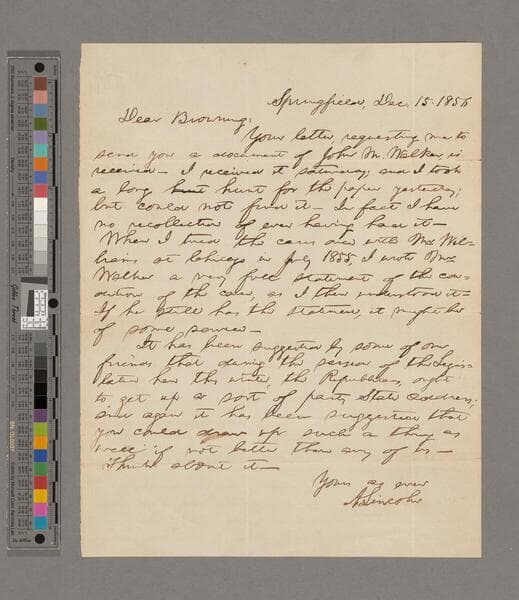 Springfield, Dec. 15. 1856
Dear Browning:
Your letter, requesting me to
send you a document of John M. Walker, is
received — I received it saturday; and I took
a long hunt hunt for the paper yesterday;
but could not find it — In fact I have
no recollection of ever having had it —
When I tried the case over with Mr. Wil-
liams at Chicago in July 1855, I wrote Mr.
Walker a very full statement of the con-
dition of the case, as I then understood it —
If he still has the statement, it might be
of some service —
It has been suggested by some of our
friends that during the session of the Legis-
lature here this winter, the Republicans, ought
to get up a sort of party State address;
and again it has been suggested that
you could draw up such a thing as
well if not better than any of us —
Think about it —
Yours as ever
A. Lincoln